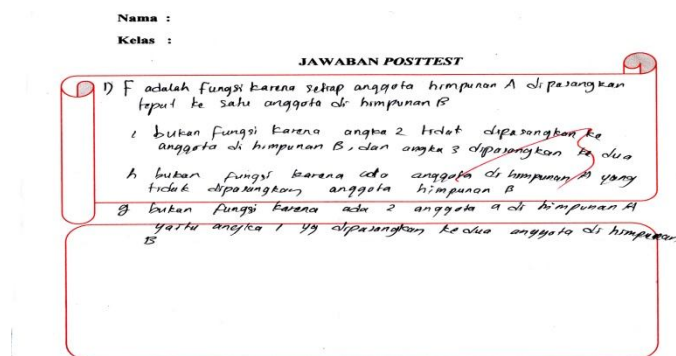 Nama :
Kelas :
JAWABAN POSTTEST
1) F adalah fungsi karena setiap anggota himpunan A dipasangkan
tepat ke satu anggota di himpunan B
i bukan fungsi karena angka 2 tidak dipasangkan ke
anggota di himpunan B, dan angka 3 dipasangkan ke dua
h bukan fungsi karena ada anggota di himpunan A yang
tidak dipasangkan anggota himpunan B
g bukan fungsi karena ada 2 anggota a di himpunan A
yaitu angka 1 yg dipasangkan ke dua anggota di himpunan
B